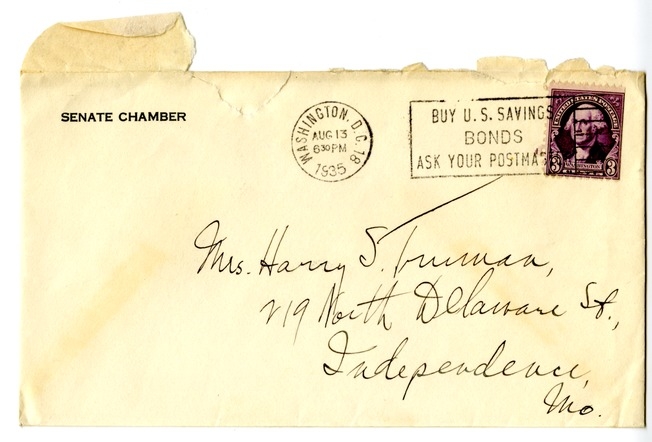 SENATE CHAMBER
WASHINGTON, D.C. 18
AUG 13
6 30 PM
1935
BUY U.S. SAVINGS
BONDS
ASK YOUR POSTMAS
UNITED STATES POSTAGE
WASHINGTON
3 3
Mrs. Harry S. Truman,
219 North Delaware St.,
Independence,
Mo.